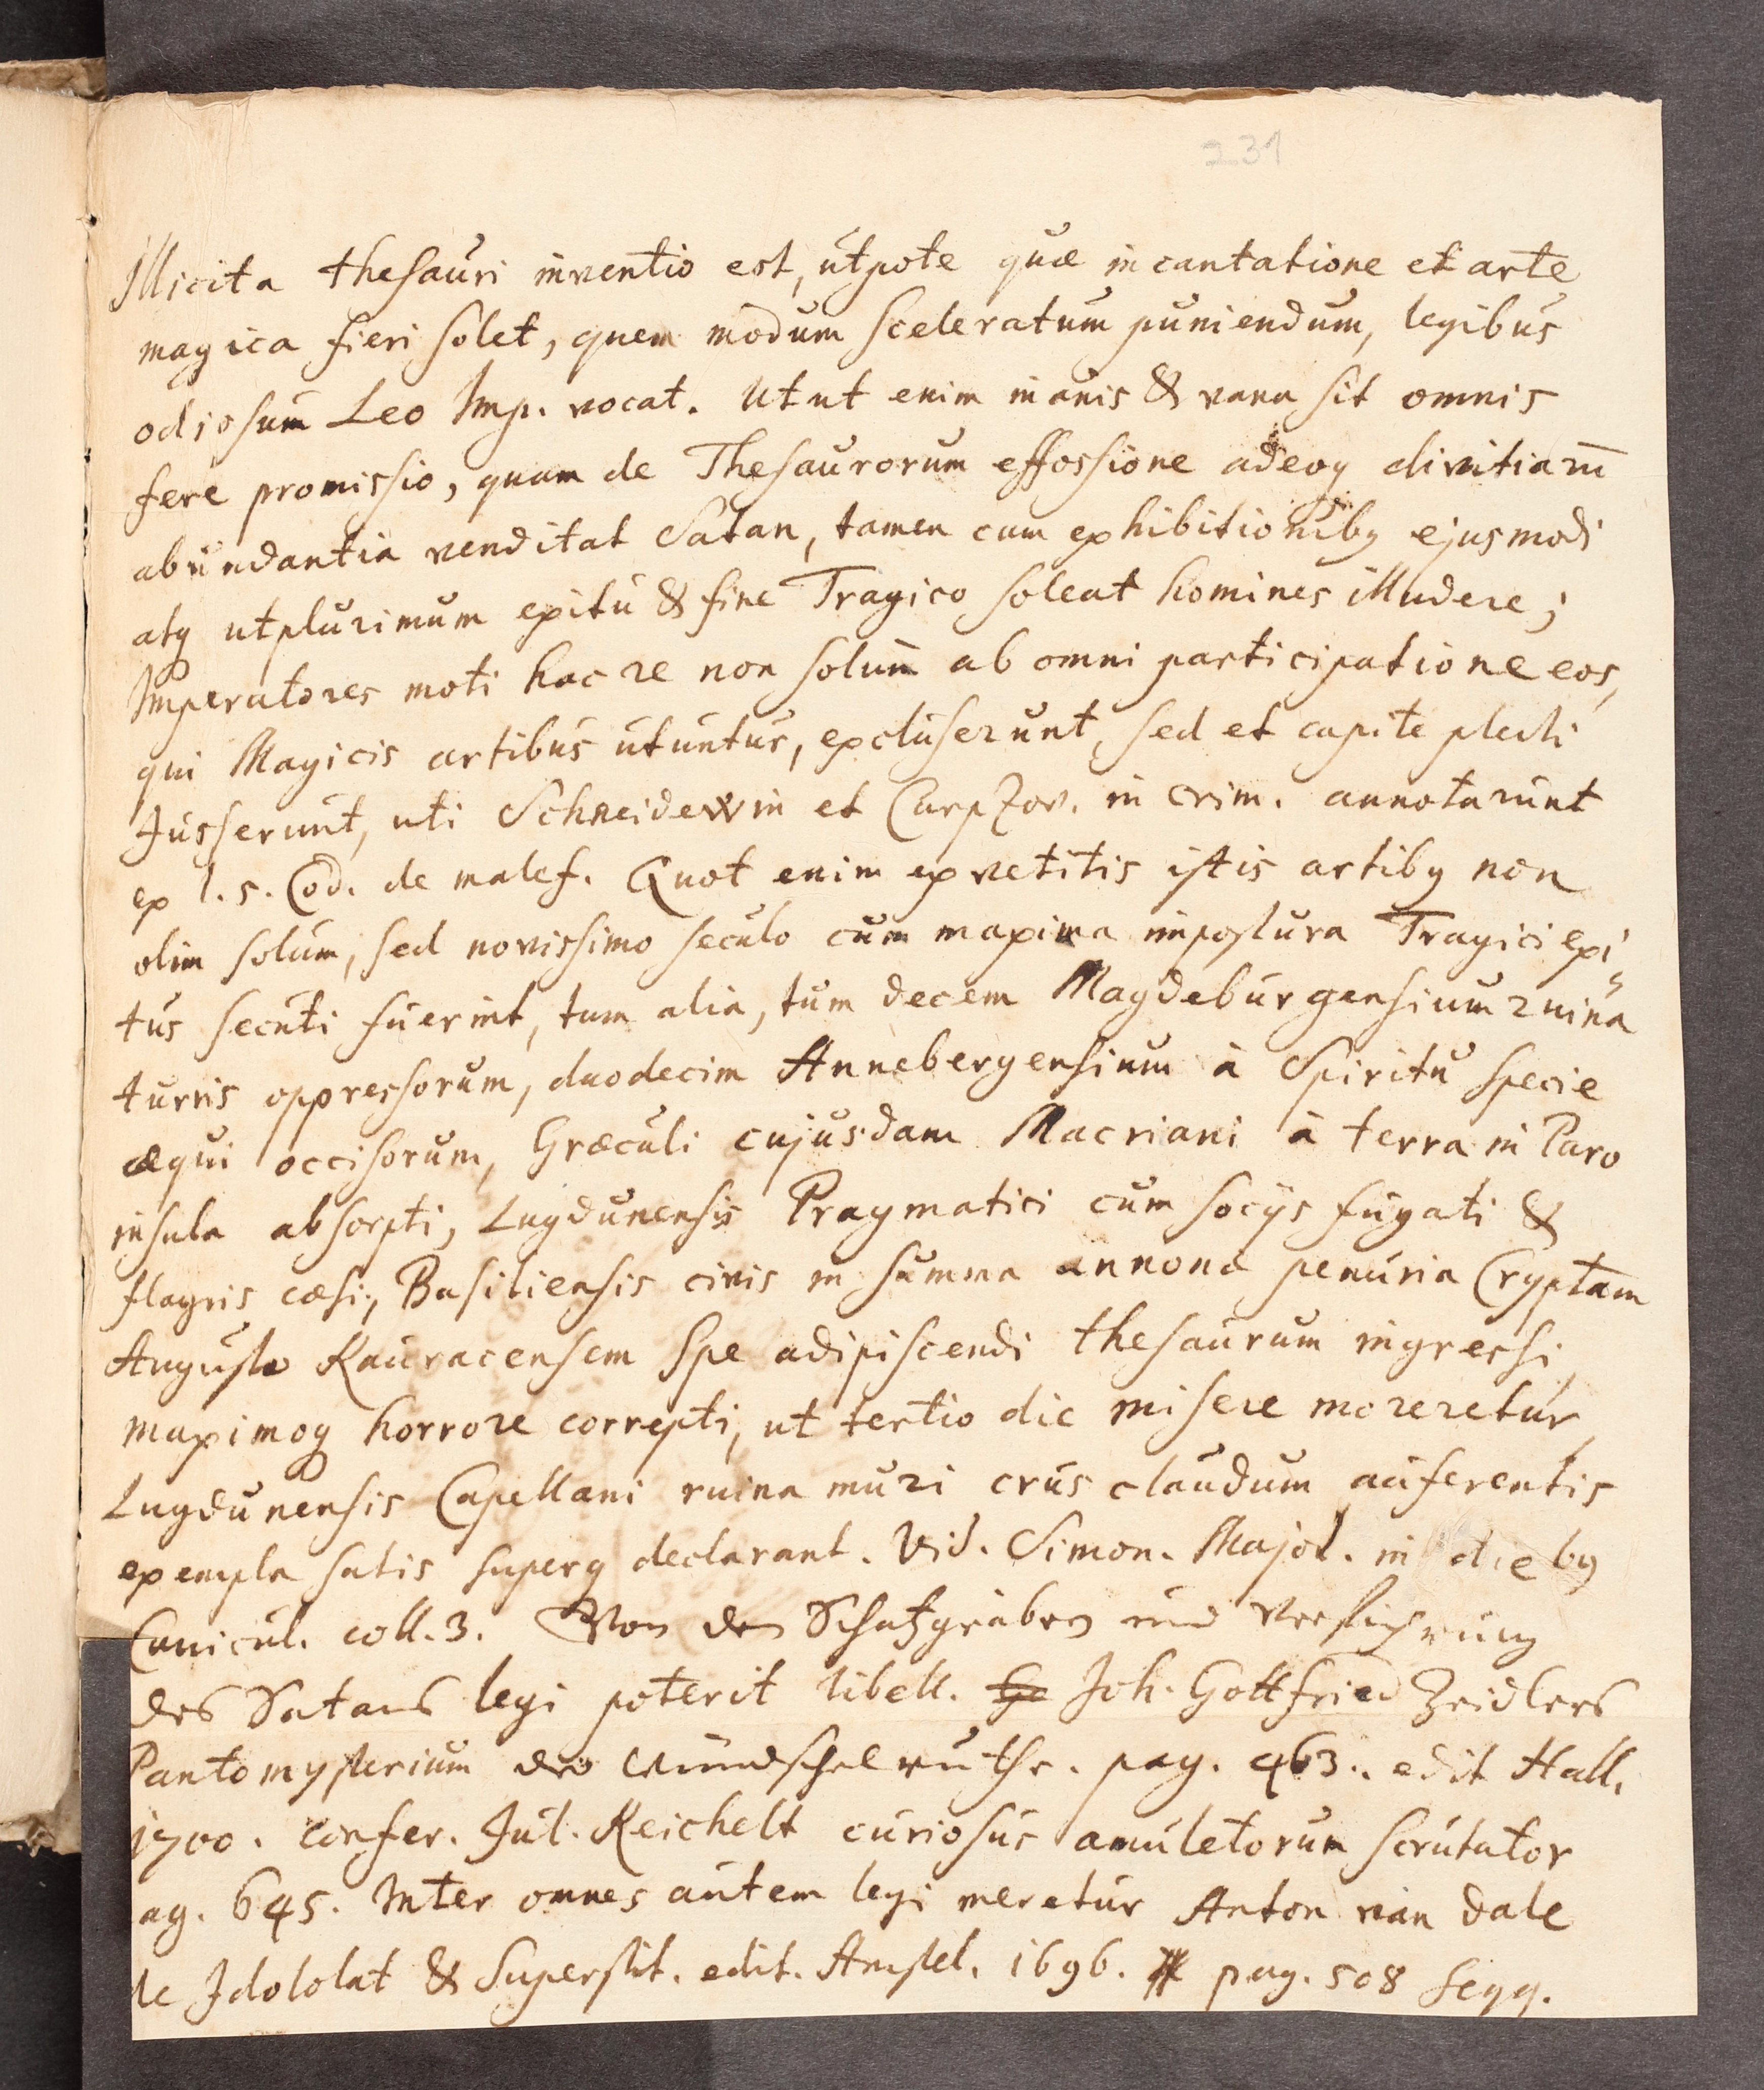 231
Illicita thesauri inventio est, utpote quæ incantatione et arte
magica fieri solet, quem modum sceleratum puniendum, legibus
odiosum Leo Imp. vocat. Utut enim inanis & vana sit omnis
fere promissio, quam de Thesaurorum effossione adeoq divitiarū
abundantia venditat Satan, tamen cum exhibitionibq ejusmodi
atq utplurimum exitu & fine Tragico soleat homines illudere;
Imperatores moti hac re non solum ab omni participatione eos,
qui Magicis artibus utuntur, excluserunt, sed et capite plecti
Jusserunt, uti Schneidewin et Carpzov. in crim. annotarunt
ex l. 5. Cod. de malef. Quot enim ex vetitis istis artibq non
olim solum, sed novissimo seculo cum maxima impostura Tragici exi-
tus secuti fuerint, tum alia, tum decem Magdeburgensium ruina
turris oppressorum, duodecim Annebergensium à Spiritu specie
æqui occisorum, Græculi cujusdam Macriani à terra in Paro
insula absorpti, Lugdunensis Pragmatici cum socijs fugati &
flagris cæsi, Basiliensis civis in summa annonæ penuria Cryptam
Augustæ Rauracensem spe adipiscendi thesaurum ingressi
maximoq horrore correpti, ut tertio die misere moreretur,
Lugdunensis Capellani ruina muri crus claudum auferentis
exempla satis superq declarant. Vid. Simon. Majol. in diebq
Canicul. coll. 3. Von den Schatzgraben und Verführung
des Satans legi poterit libell. Joh. Gottfried Zeidlers
Pantomysterium der Wündschelruthe. pag. 463. edit Hall.
1700. confer. Jul. Reichelt curiosus amuletorum scrutator
ag. 645. Inter omnes autem legi meretur Anton van Dale
de Idololat & Superstit. edit. Amstel. 1696. pag. 508 seqq.